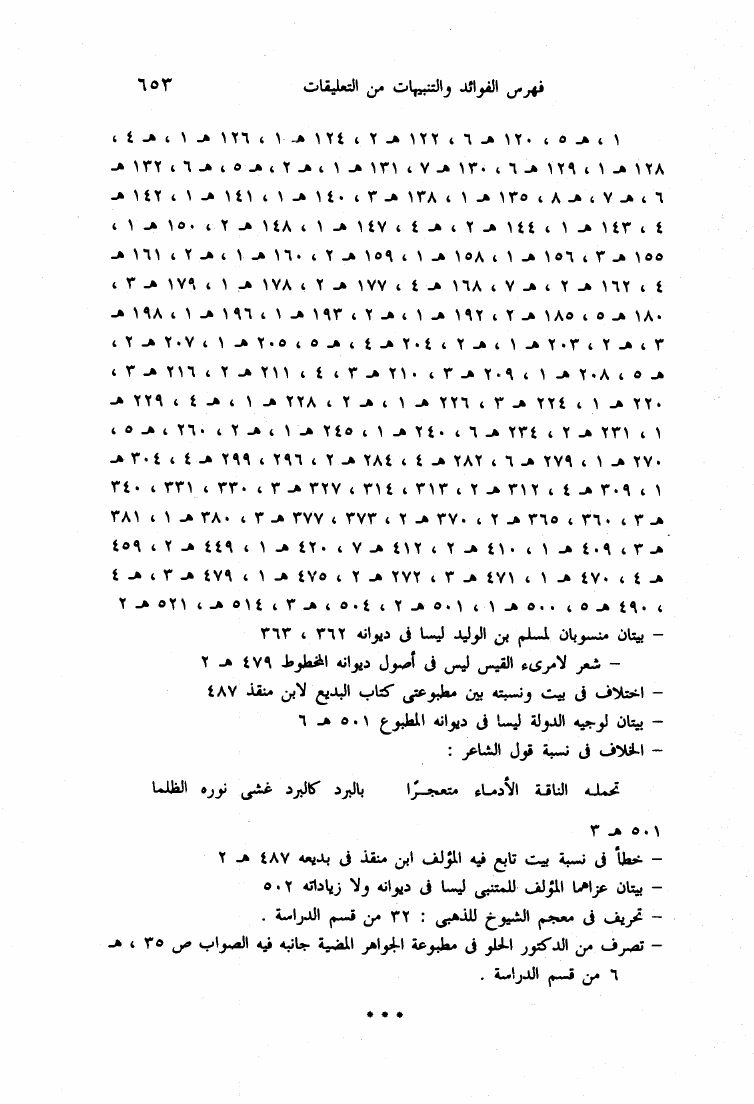 فهرس الفوائد والتنبيهات من التعليقات ٦٥٣
١ ، هـ ٥ ، ١٢٠ هـ ٦ ، ١٢٢ هـ ٢ ، ١٢٤ هـ ١ ، ١٢٦ هـ ١ ، هـ ٤ ،
١٢٨ هـ ١ ، ١٢٩ هـ ٦ ، ١٣٠ هـ ٧ ، ١٣١ هـ ١ ، هـ ٢ ، هـ ٥ ، هـ ٦ ، ١٣٢ هـ
٦ ، هـ ٧ ، هـ ٨ ، ١٣٥ هـ ١ ، ١٣٨ هـ ٣ ، ١٤٠ هـ ١ ، ١٤١ هـ ١ ، ١٤٢ هـ
٤ ، ١٤٣ هـ ١ ، ١٤٤ هـ ٢ ، هـ ٤ ، ١٤٧ هـ ١ ، ١٤٨ هـ ٢ ، ١٥٠ هـ ١ ،
١٥٥ هـ ٣ ، ١٥٦ هـ ١ ، ١٥٨ هـ ١ ، ١٥٩ هـ ٢ ، ١٦٠ هـ ١ ، هـ ٢ ، ١٦١ هـ
٤ ، ١٦٢ هـ ٢ ، هـ ٧ ، ١٦٨ هـ ٤ ، ١٧٧ هـ ٢ ، ١٧٨ هـ ١ ، ١٧٩ هـ ٣ ،
١٨٠ هـ ٥ ، ١٨٥ هـ ٢ ، ١٩٢ هـ ١ ، هـ ٢ ، ١٩٣ هـ ١ ، ١٩٦ هـ ١ ، ١٩٨ هـ
٣ ، هـ ٢ ، ٢٠٣ هـ ١ ، هـ ٢ ، ٢٠٤ هـ ٤ ، هـ ٥ ، ٢٠٥ هـ ١ ، ٢٠٧ هـ ٢ ،
هـ ٥ ، ٢٠٨ هـ ١ ، ٢٠٩ هـ ٣ ، ٢١٠ هـ ٣ ، ٤ ، ٢١١ هـ ٢ ، ٢١٦ هـ ٣ ،
٢٢٠ هـ ١ ، ٢٢٤ هـ ٣ ، ٢٢٦ هـ ١ ، هـ ٢ ، ٢٢٨ هـ ١ ، هـ ٤ ، ٢٢٩ هـ
١ ، ٢٣١ هـ ٢ ، ٢٣٤ هـ ٦ ، ٢٤٠ هـ ١ ، ٢٤٥ هـ ١ ، هـ ٢ ، ٢٦٠ ، هـ ٥ ،
٢٧٠ هـ ١ ، ٢٧٩ هـ ٦ ، ٢٨٢ هـ ٤ ، ٢٨٤ هـ ٢ ، ٢٩٦ ، ٢٩٩ هـ ٤ ، ٣٠٤ هـ
١ ، ٣٠٩ هـ ٤ ، ٣١٢ هـ ٢ ، ٣١٣ ، ٣١٤ ، ٣٢٧ هـ ٣ ، ٣٣٠ ، ٣٣١ ، ٣٤٠
هـ ٣ ، ٣٦٠ ، ٣٦٥ هـ ٢ ، ٣٧٠ هـ ٢ ، ٣٧٣ ، ٣٧٧ هـ ٣ ، ٣٨٠ هـ ١ ، ٣٨١
هـ ٣ ، ٤٠٩ هـ ١ ، ٤١٠ هـ ٢ ، ٤١٢ هـ ٧ ، ٤٢٠ هـ ١ ، ٤٤٩ هـ ٢ ، ٤٥٩
هـ ٤ ، ٤٧٠ هـ ١ ، ٤٧١ هـ ٣ ، ٢٧٢ هـ ٢ ، ٤٧٥ هـ ١ ، ٤٧٩ هـ ٣ ، هـ ٤
، ٤٩٠ هـ ٥ ، ٥٠٠ هـ ١ ، ٥٠١ هـ ٢ ، ٥٠٤ ، هـ ٣ ، ٥١٤ هـ ، ٥٢١ هـ ٢
– بيتان منسوبان لمسلم بن الوليد ليسا فى ديوانه ٣٦٢ ، ٣٦٣
– شعر لامرىء القيس ليس فى أصول ديوانه المخطوط ٤٧٩ هـ ٢
– اختلاف فى بيت ونسبته بين مطبوعتى كتاب البديع لابن منقذ ٤٨٧
– بيتان لوجيه الدولة ليسا فى ديوانه المطبوع ٥٠١ هـ ٦
– الخلاف فى نسبة قول الشاعر :
تحمله الناقة الأدماء متعجرًا بالبرد كالبرد غشى نوره الظلما
٥٠١ هـ ٣
– خطأ فى نسبة بيت تابع فيه المؤلف ابن منقذ فى بديعه ٤٨٧ هـ ٢
– بيتان عزاهما المؤلف للمتنبى ليسا فى ديوانه ولا زياداته ٥٠٢
– تحريف فى معجم الشيوخ للذهبى : ٣٢ من قسم الدراسة .
– تصرف من الدكتور الحلو فى مطبوعة الجواهر المضية جانبه فيه الصواب ص ٣٥ ، هـ
٦ من قسم الدراسة .
* * *